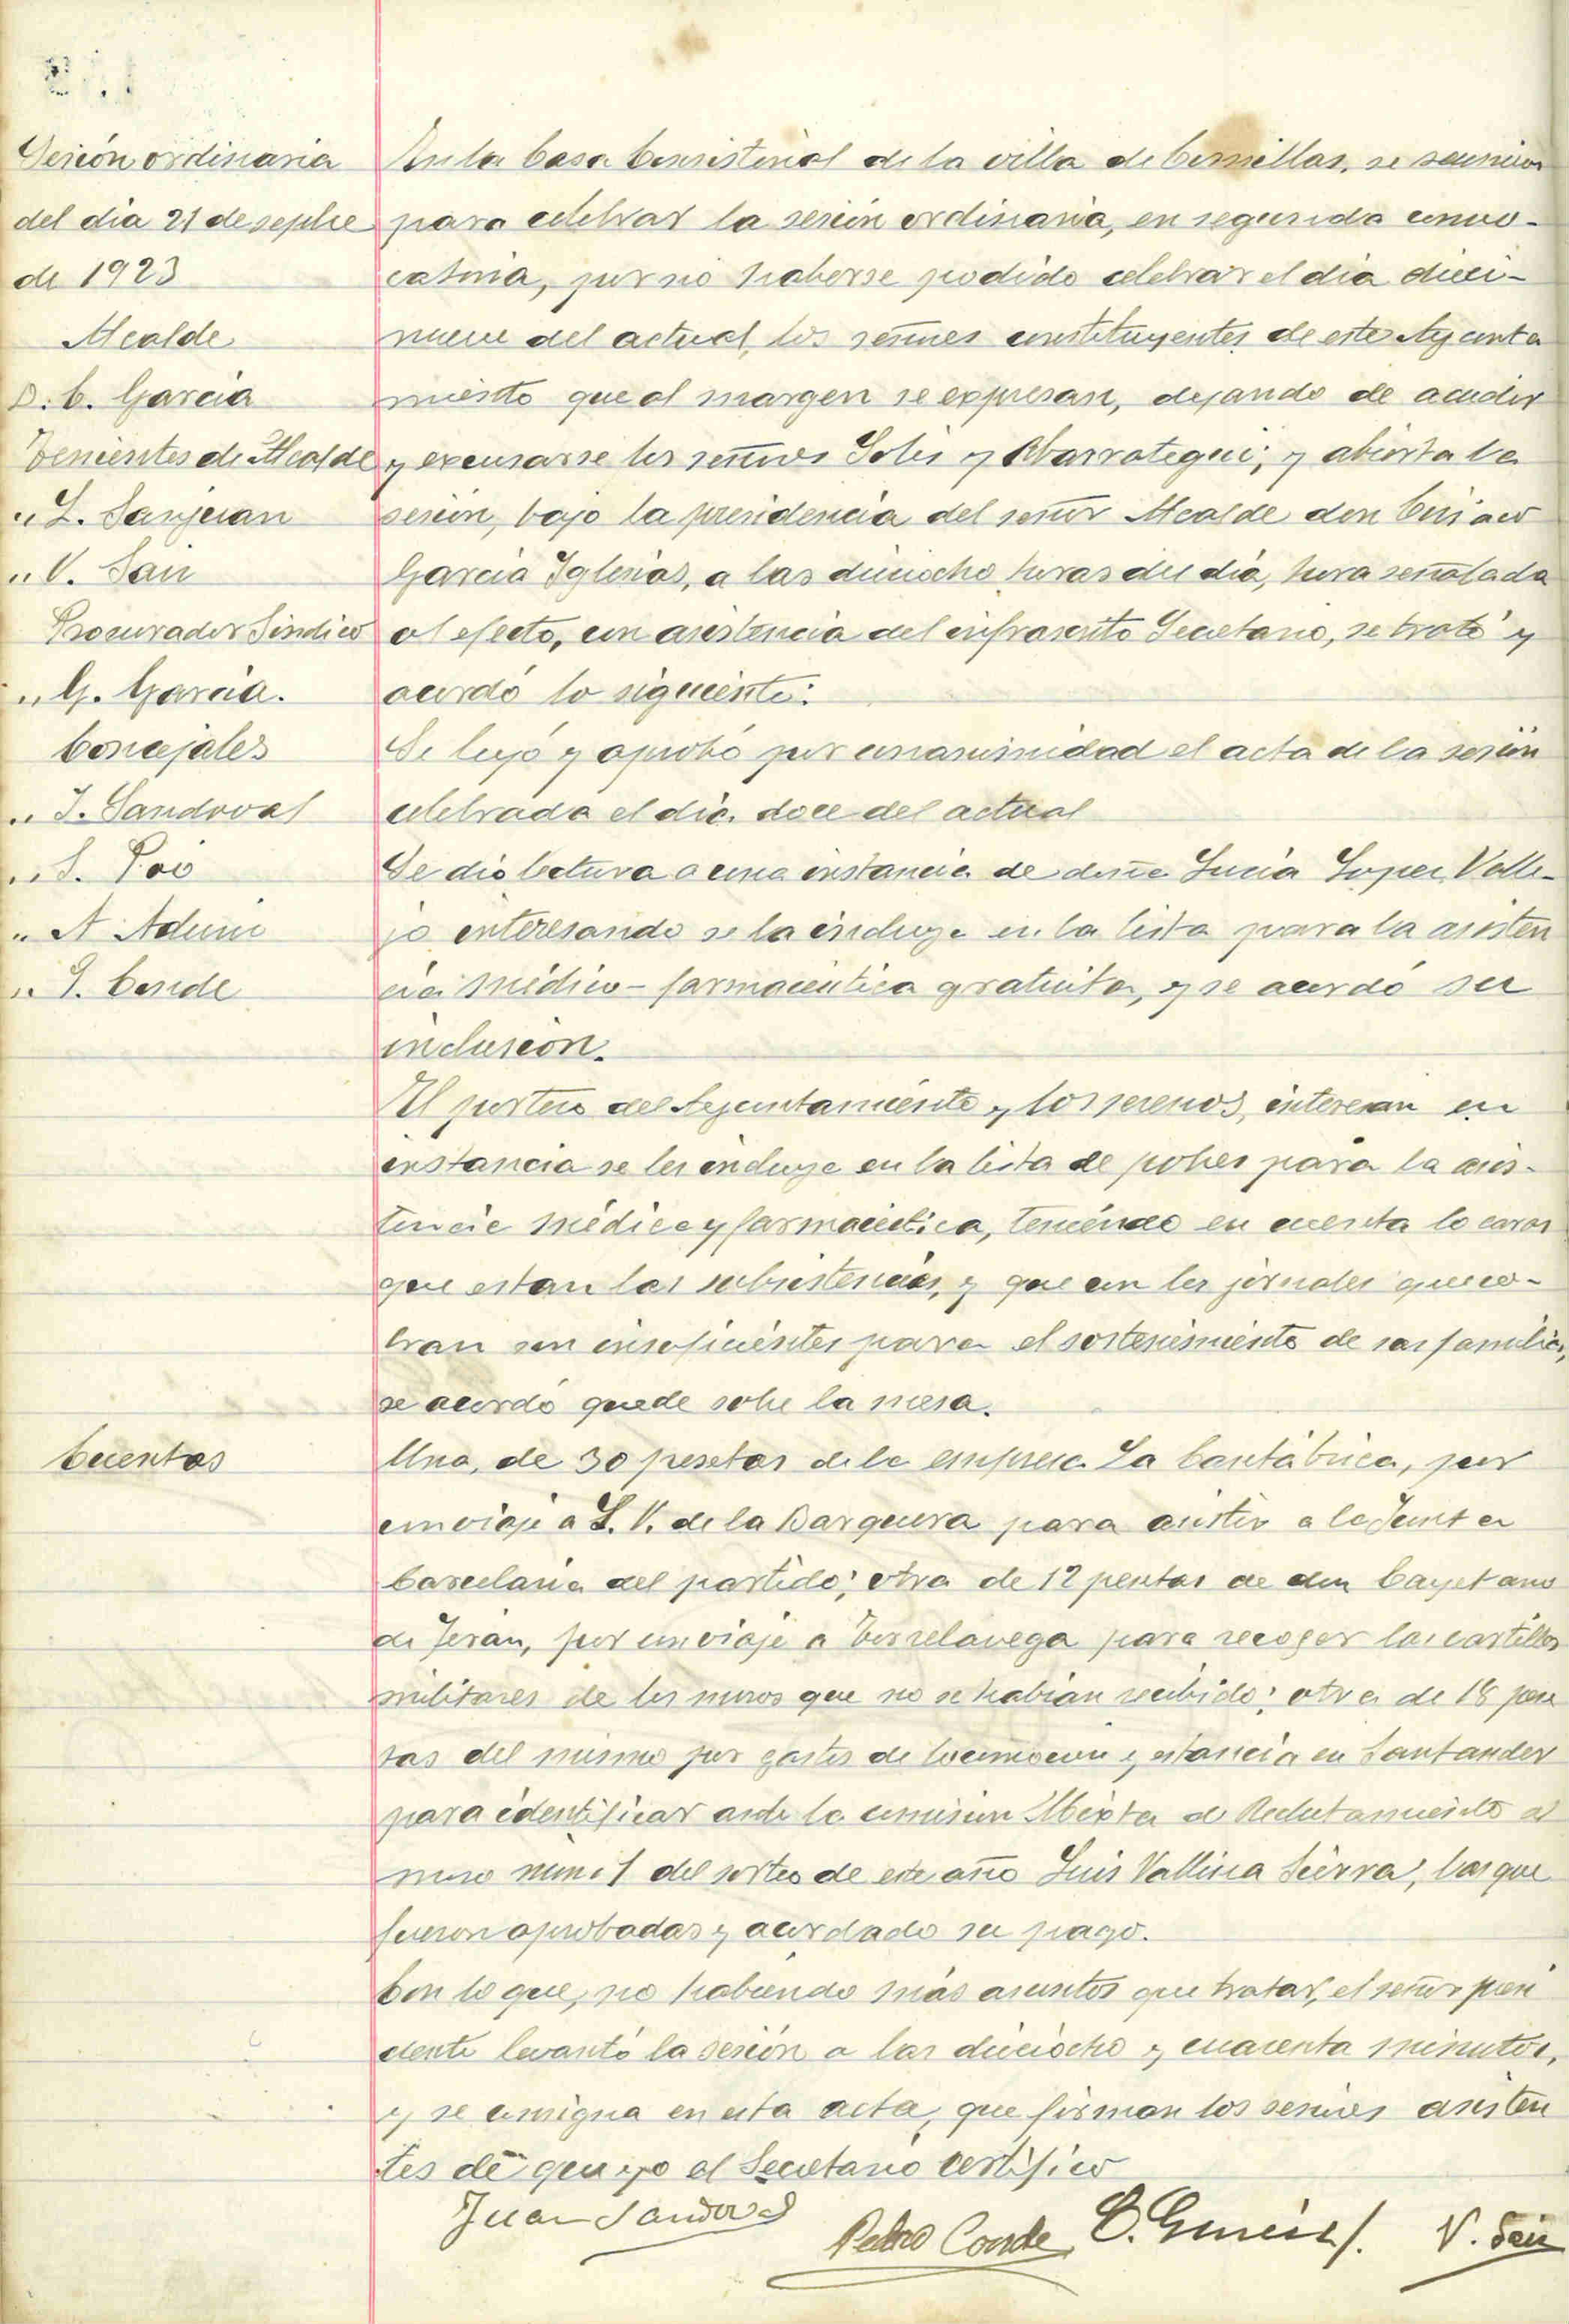 Sesión ordinaria
del dia 21 de sepbre
de 1923
Alcalde
D. C. Garcia
Tenientes de Alcalde
" L. Sanjuan
" V. Saiz
Procurador Sindico
" G. Garcia.
Concejales
" J. Sandoval
" A
" Conde
En la Casa Consistorial de la villa de Comillas, se reunieron
para celebrar la sesión ordinaria, en segunda convo-
catoria, por no haberse podido celebrar el dia dieci-
nueve del actual, los señores constituyentes de este Ayunta
miento que al margen se expresan, dejando de acudir
y excusarse los señores Solis y Abarrategui; y abierta la
sesión, bajo la presidencia del señor Alcalde don Ciriaco
Garcia Iglesias, a las dieciocho horas del dia, hora señalada
al efecto, con asistencia del infrascrito Secretario, se trató y
acordó lo siguiente:
Se leyó y aprobó por unanimidad el acta de la sesión
celebrada el dia doce del actual
Se dio lectura a una instancia de doña Lucia Lopez Valle-
jo interesando se la incluya en la lista para la asisten
cia médico-farmaceutica gratuita, y se acordó su
inclusión.
El portero del Ayuntamiento y los serenos, interesan en
instancia se les incluya en la lista de pobres para la asis-
tencia médica y farmaceutica, teniendo en cuenta lo caras
que estan las subsistencias, y que con los jornales que co-
bran son insuficientes para el sostenimiento de sus familias,
se acordó quede sobre la mesa.
Cuentas
Una, de 30 pesetas de la empresa La Cantábrica, por
un viaje a S. V. de la Barquera para asistir a la Junta
Carcelaria del partido; otra de 12 pesetas de don Cayetano
de Teran, por un viaje a Torrelavega para recoger las cartillas
militares de los mozos que no se habian recibido; otra de 18 pese
tas del mismo por gastos de locomocion y estancia en Santander
para identificar ante la comision Mixta de Reclutamiento al
mozo num. 1 del sorteo de este año Luis Vallina Sierra, las que
fueron aprobadas y acordado su pago.
Con lo que, no habiendo más asuntos que tratar, el señor presi
dente levantó la sesión a las dieciocho y cuarenta minutos,
y se consigna en esta acta, que firman los señores asisten
tes de que yo el Secretario certifico
Juan Sandoval
Pedro Conde
V. Saiz